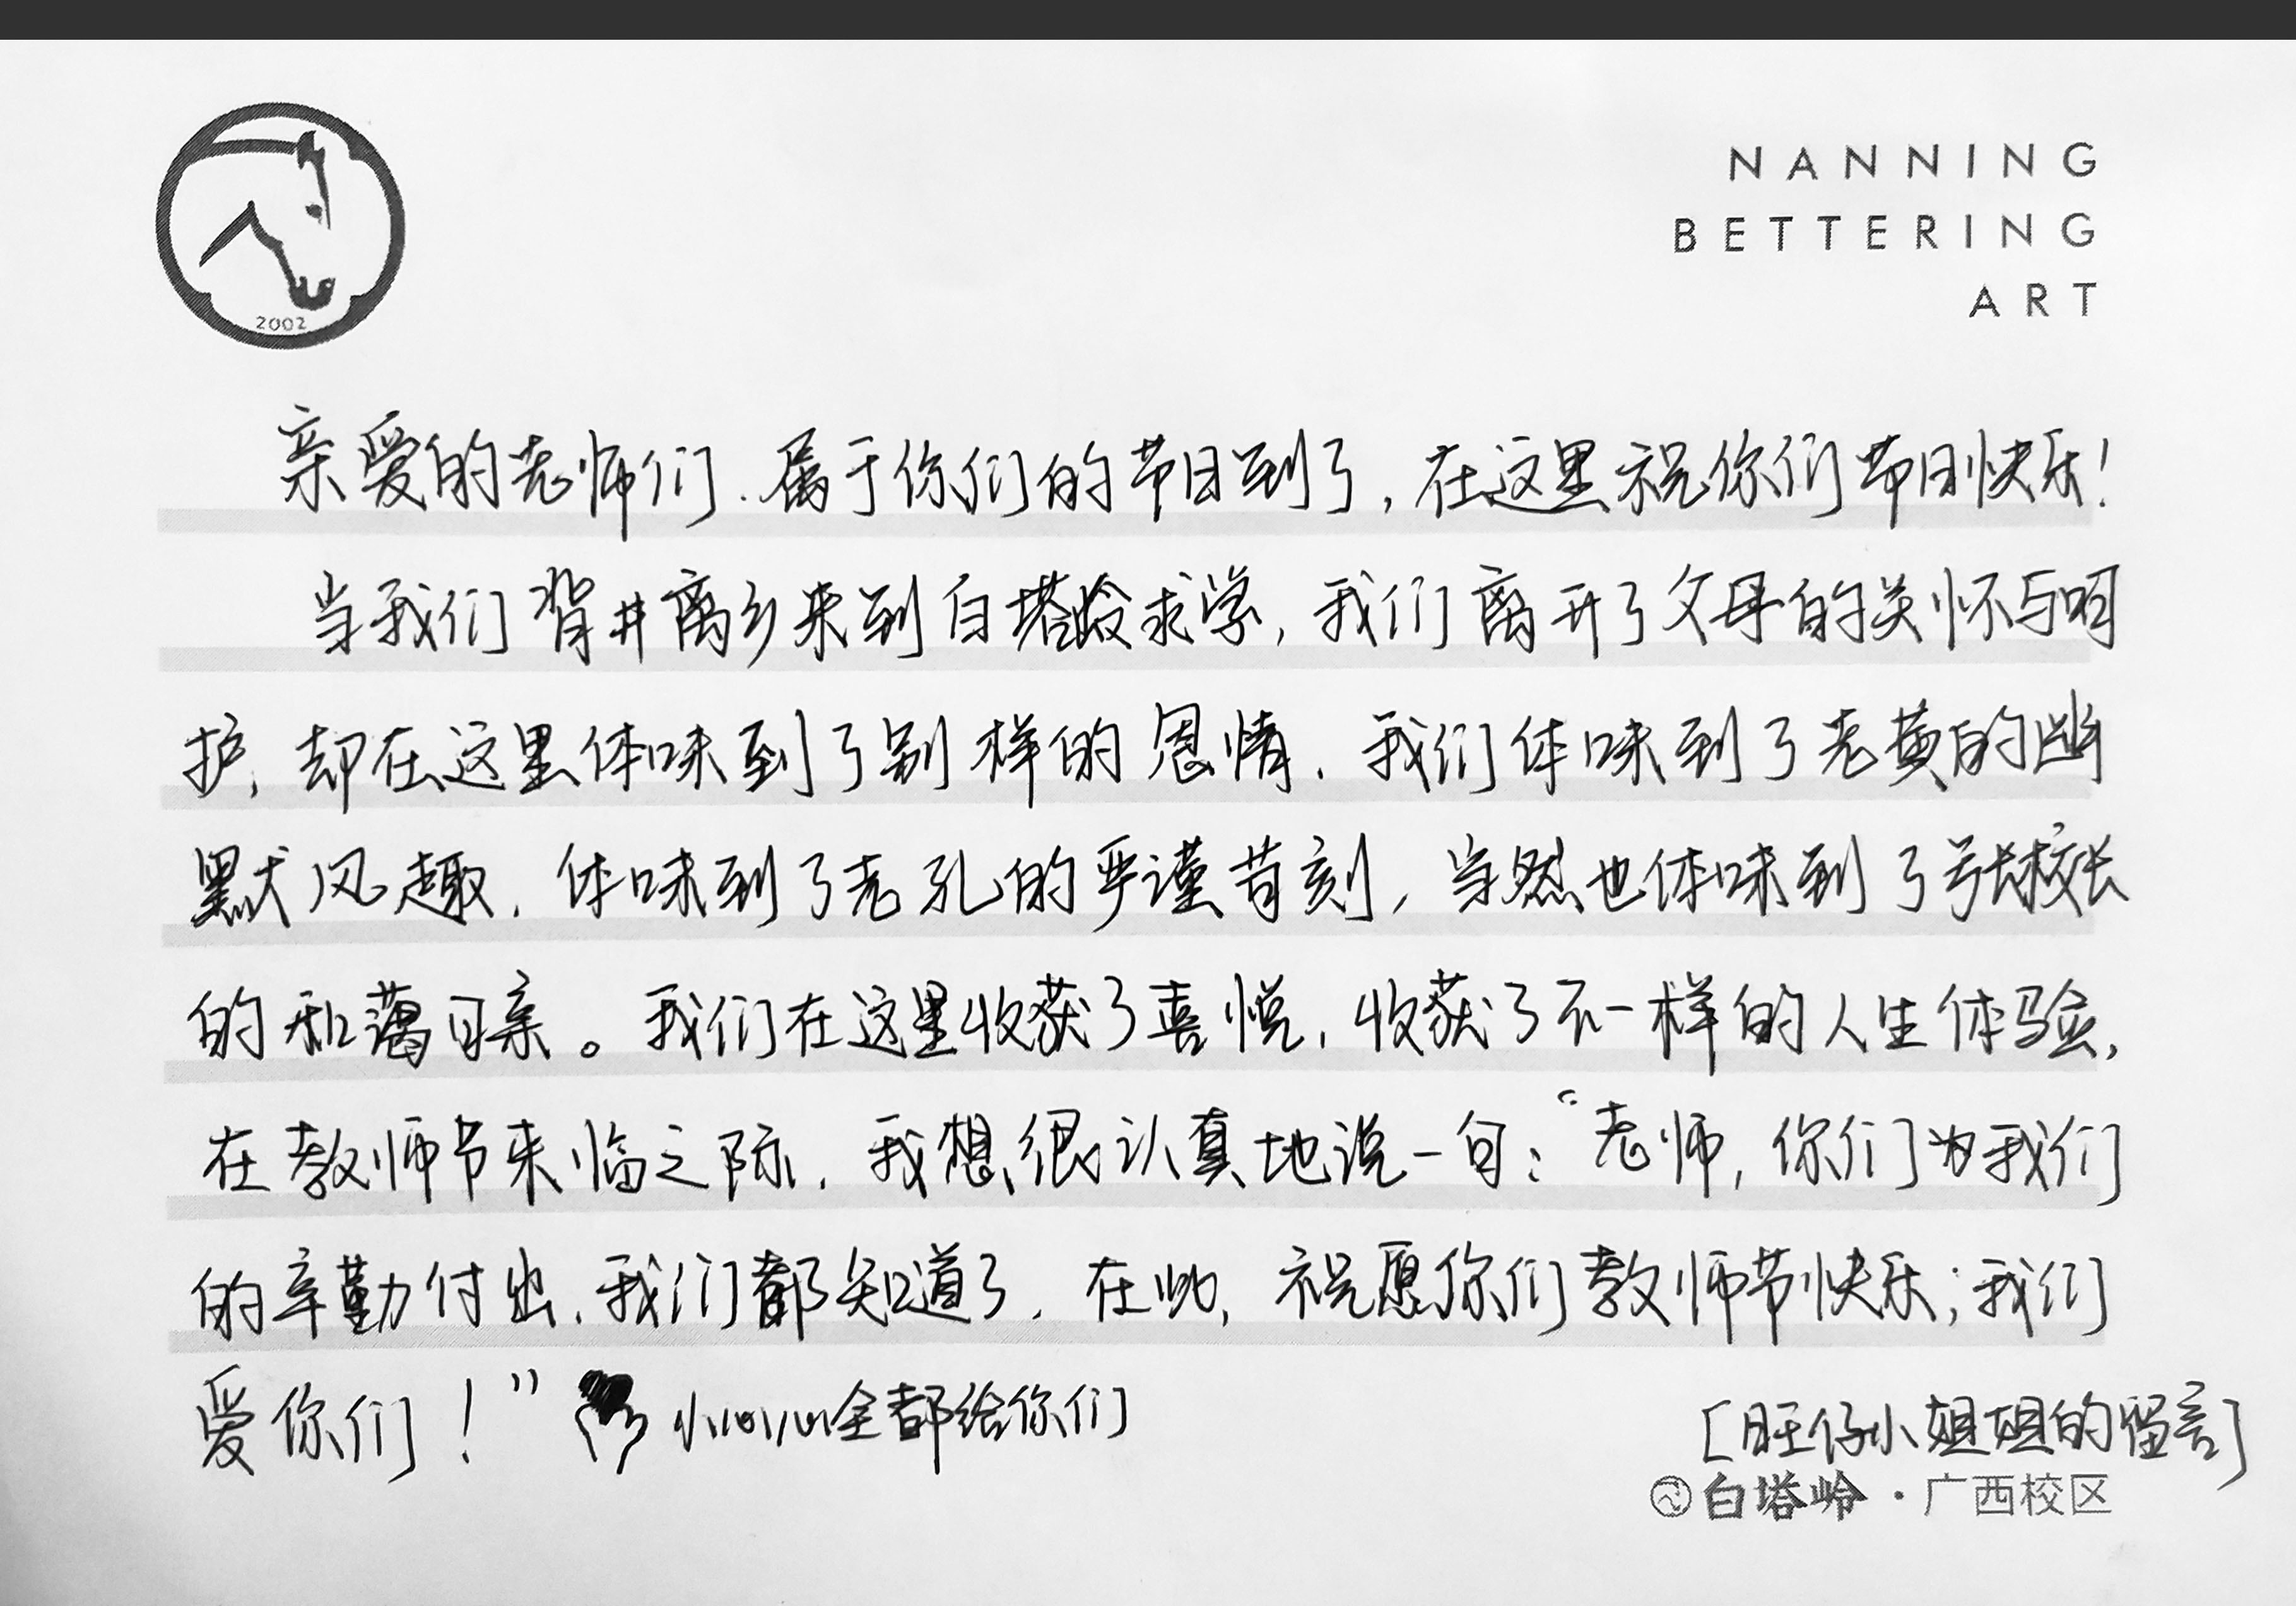 2002
NANNING
BETTERING
ART
亲爱的老师们.属于你们的节日到了,在这里祝你们节日快乐!
当我们背井离乡来到白塔岭求学,我们离开了父母的关怀与呵
护,却在这里体味到了别样的恩情.我们体味到了老黄的幽
默风趣,体味到了老孔的严谨苛刻,当然也体味到了校长
的和蔼可亲。我们在这里收获了喜悦,收获了不一样的人生体验,
在教师节来临之际,我想很认真地说一句:“老师,你们为我们
的辛勤付出,我们都知道了.在此,祝愿你们教师节快乐;我们
爱你们!” 全都给你们
[旺仔小姐姐的留言]
白塔岭·广西校区